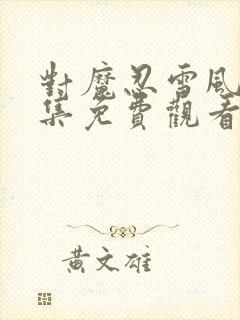 對魔忍雪風
集免費觀看
黃文雄